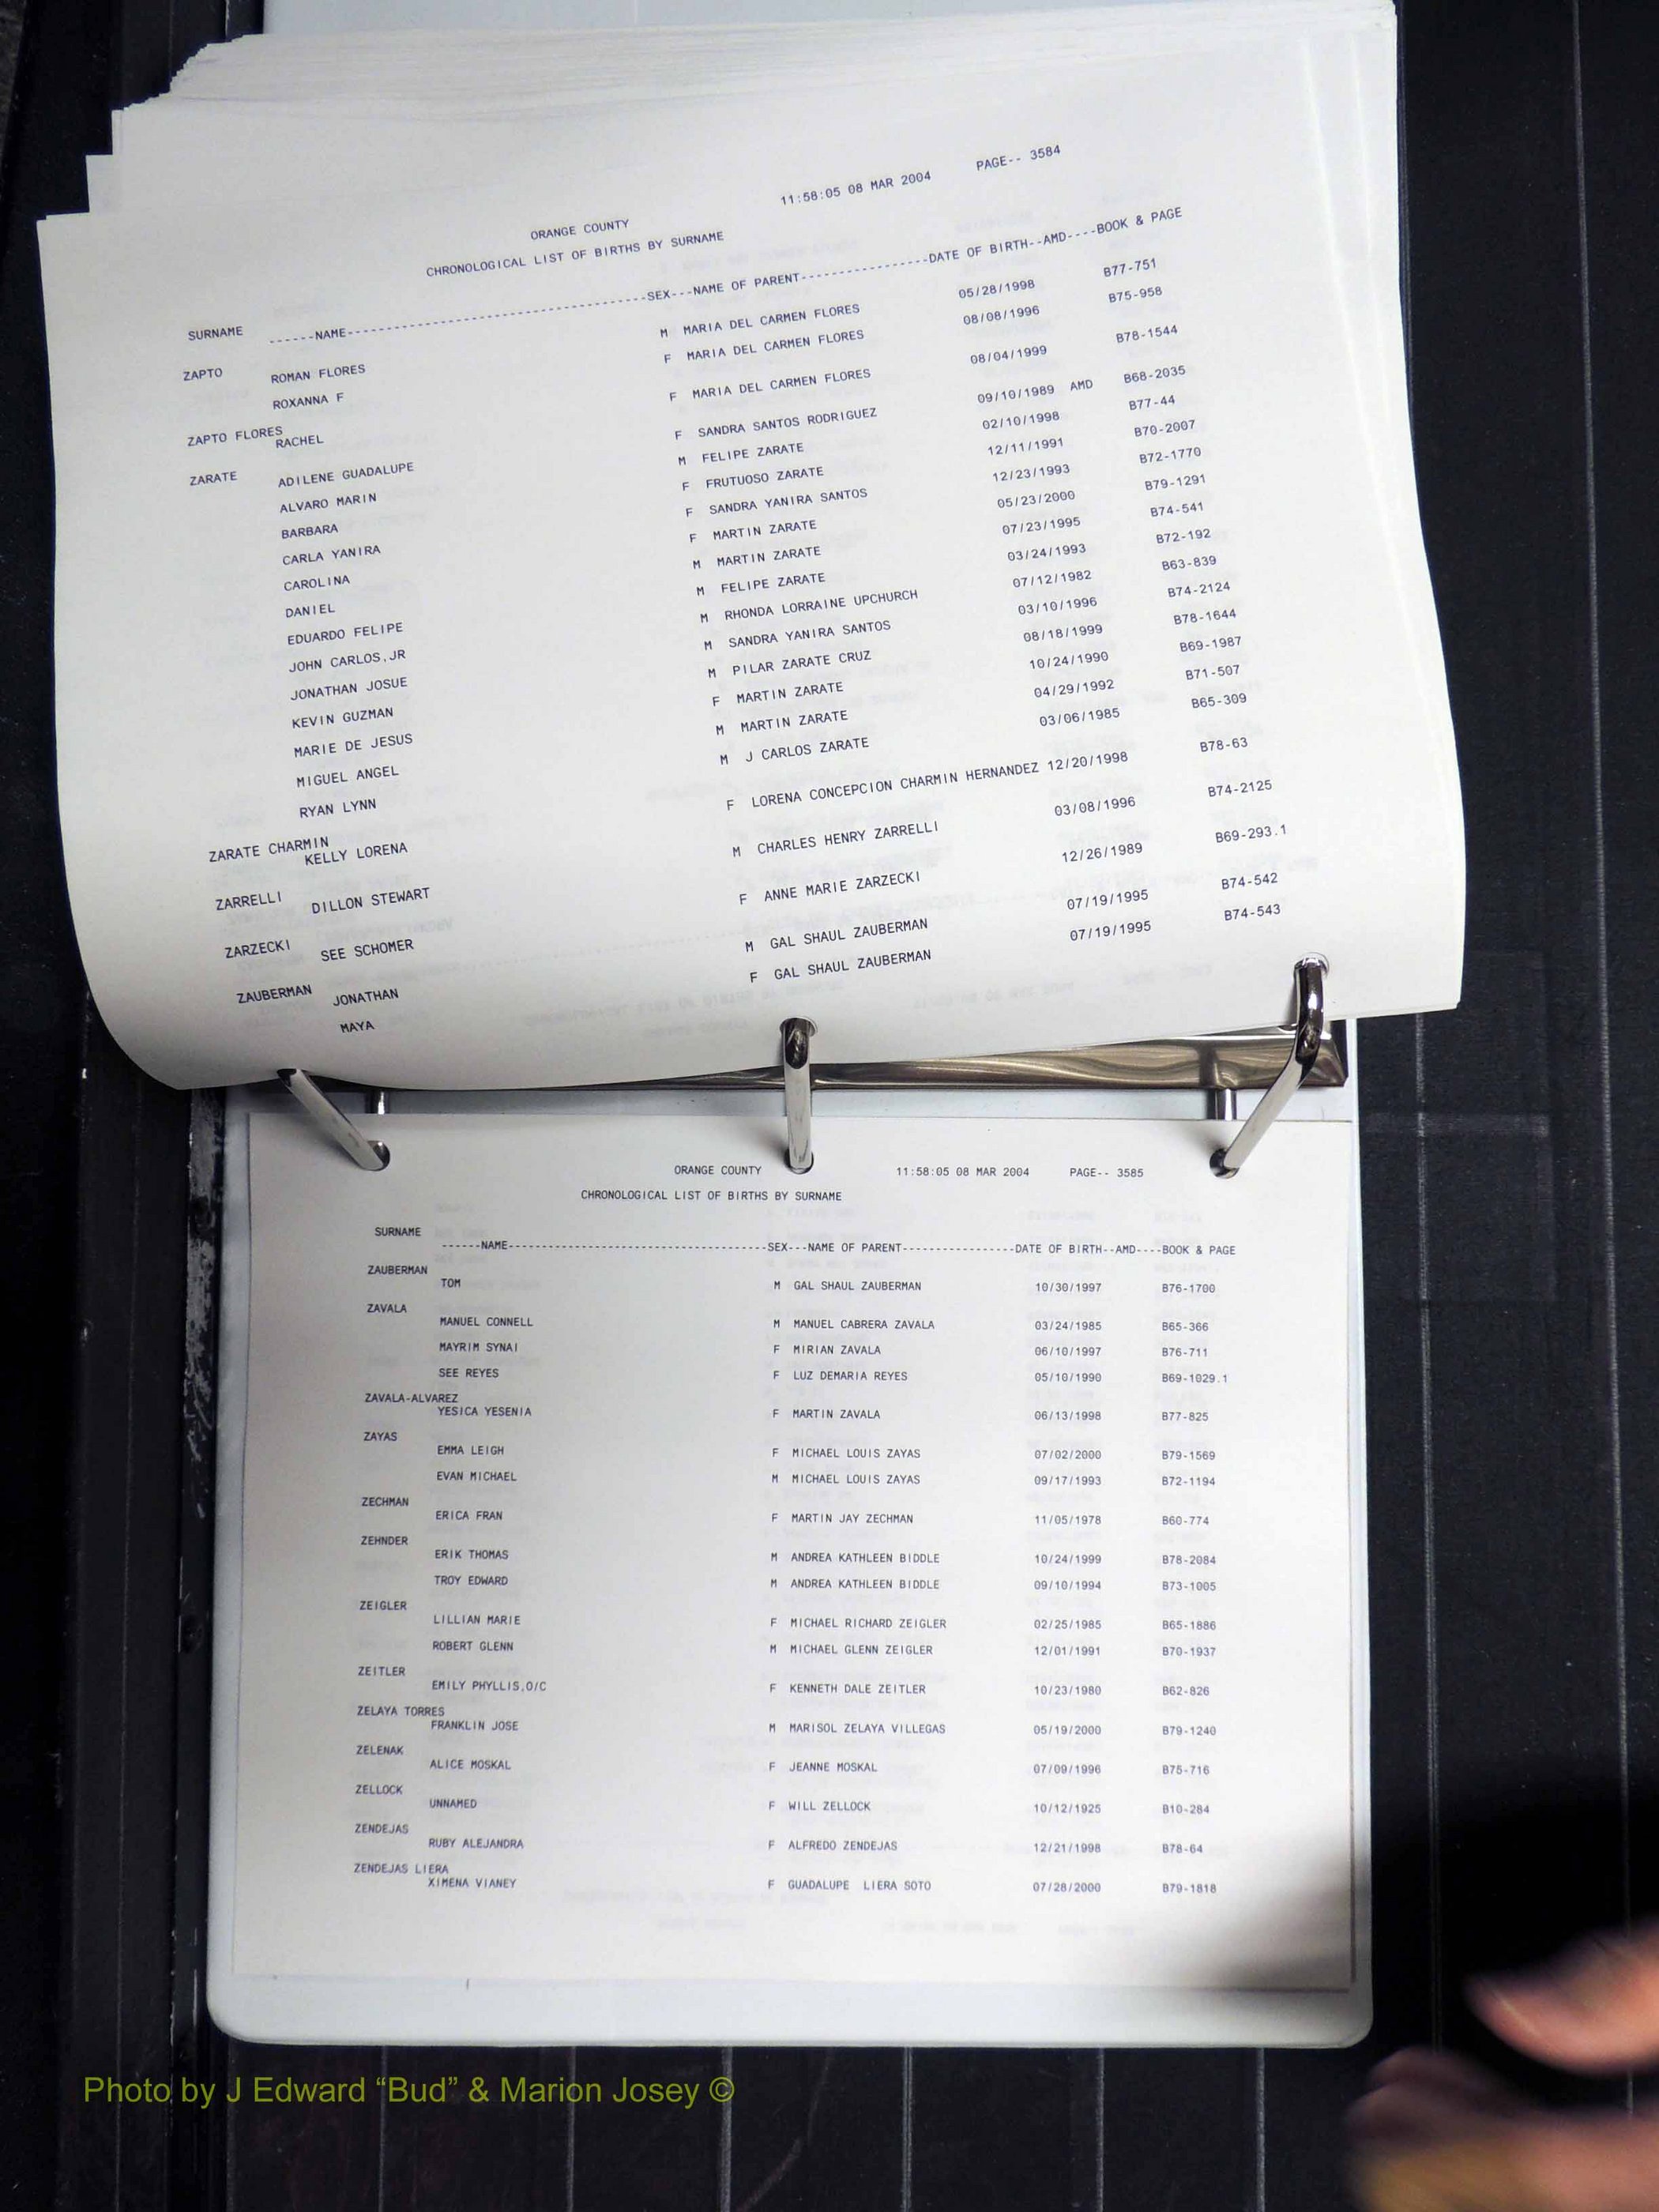 11:58:05 08 MAR 2004 PAGE-- 3584
ORANGE COUNTY
CHRONOLOGICAL LIST OF BIRTHS BY SURNAME
SURNAME
------NAME----------------------------------SEX---NAME OF PARENT----------------DATE OF BIRTH--AMD----BOOK & PAGE
ZAPTO
ROMAN FLORES M MARIA DEL CARMEN FLORES 05/28/1998 B77-751
ROXANNA F F MARIA DEL CARMEN FLORES 08/08/1996 B75-958
ZAPTO FLORES
RACHEL F MARIA DEL CARMEN FLORES 08/04/1999 B78-1544
ZARATE
ADILENE GUADALUPE F SANDRA SANTOS RODRIGUEZ 09/10/1989 AMD B68-2035
ALVARO MARIN M FELIPE ZARATE 02/10/1998 B77-44
BARBARA F FRUTUOSO ZARATE 12/11/1991 B70-2007
CARLA YANIRA F SANDRA YANIRA SANTOS 12/23/1993 B72-1770
CAROLINA F MARTIN ZARATE 05/23/2000 B79-1291
DANIEL M MARTIN ZARATE 07/23/1995 B74-541
EDUARDO FELIPE M FELIPE ZARATE 03/24/1993 B72-192
JOHN CARLOS,JR M RHONDA LORRAINE UPCHURCH 07/12/1982 B63-839
JONATHAN JOSUE M SANDRA YANIRA SANTOS 03/10/1996 B74-2124
KEVIN GUZMAN M PILAR ZARATE CRUZ 08/18/1999 B78-1644
MARIE DE JESUS F MARTIN ZARATE 10/24/1990 B69-1987
MIGUEL ANGEL M MARTIN ZARATE 04/29/1992 B71-507
RYAN LYNN M J CARLOS ZARATE 03/06/1985 B65-309
ZARATE CHARMIN
KELLY LORENA F LORENA CONCEPCION CHARMIN HERNANDEZ 12/20/1998 B78-63
ZARRELLI
DILLON STEWART M CHARLES HENRY ZARRELLI 03/08/1996 B74-2125
ZARZECKI
SEE SCHOMER F ANNE MARIE ZARZECKI 12/26/1989 B69-293.1
ZAUBERMAN
JONATHAN M GAL SHAUL ZAUBERMAN 07/19/1995 B74-542
MAYA F GAL SHAUL ZAUBERMAN 07/19/1995 B74-543
ORANGE COUNTY 11:58:05 08 MAR 2004 PAGE-- 3585
CHRONOLOGICAL LIST OF BIRTHS BY SURNAME
SURNAME
------NAME----------------------------------SEX---NAME OF PARENT----------------DATE OF BIRTH--AMD----BOOK & PAGE
ZAUBERMAN
TOM M GAL SHAUL ZAUBERMAN 10/30/1997 B76-1700
ZAVALA
MANUEL CONNELL M MANUEL CABRERA ZAVALA 03/24/1985 B65-366
MAYRIM SYNAI F MIRIAN ZAVALA 06/10/1997 B76-711
SEE REYES F LUZ DEMARIA REYES 05/10/1990 B69-1029.1
ZAVALA-ALVAREZ
YESICA YESENIA F MARTIN ZAVALA 06/13/1998 B77-825
ZAYAS
EMMA LEIGH F MICHAEL LOUIS ZAYAS 07/02/2000 B79-1569
EVAN MICHAEL M MICHAEL LOUIS ZAYAS 09/17/1993 B72-1194
ZECHMAN
ERICA FRAN F MARTIN JAY ZECHMAN 11/05/1978 B60-774
ZEHNDER
ERIK THOMAS M ANDREA KATHLEEN BIDDLE 10/24/1999 B78-2084
TROY EDWARD M ANDREA KATHLEEN BIDDLE 09/10/1994 B73-1005
ZEIGLER
LILLIAN MARIE F MICHAEL RICHARD ZEIGLER 02/25/1985 B65-1886
ROBERT GLENN M MICHAEL GLENN ZEIGLER 12/01/1991 B70-1937
ZEITLER
EMILY PHYLLIS,O/C F KENNETH DALE ZEITLER 10/23/1980 B62-826
ZELAYA TORRES
FRANKLIN JOSE M MARISOL ZELAYA VILLEGAS 05/19/2000 B79-1240
ZELENAK
ALICE MOSKAL F JEANNE MOSKAL 07/09/1996 B75-716
ZELLOCK
UNNAMED F WILL ZELLOCK 10/12/1925 B10-284
ZENDEJAS
RUBY ALEJANDRA F ALFREDO ZENDEJAS 12/21/1998 B78-64
ZENDEJAS LIERA
XIMENA VIANEY F GUADALUPE LIERA SOTO 07/28/2000 B79-1818
Photo by J Edward “Bud” & Marion Josey ©